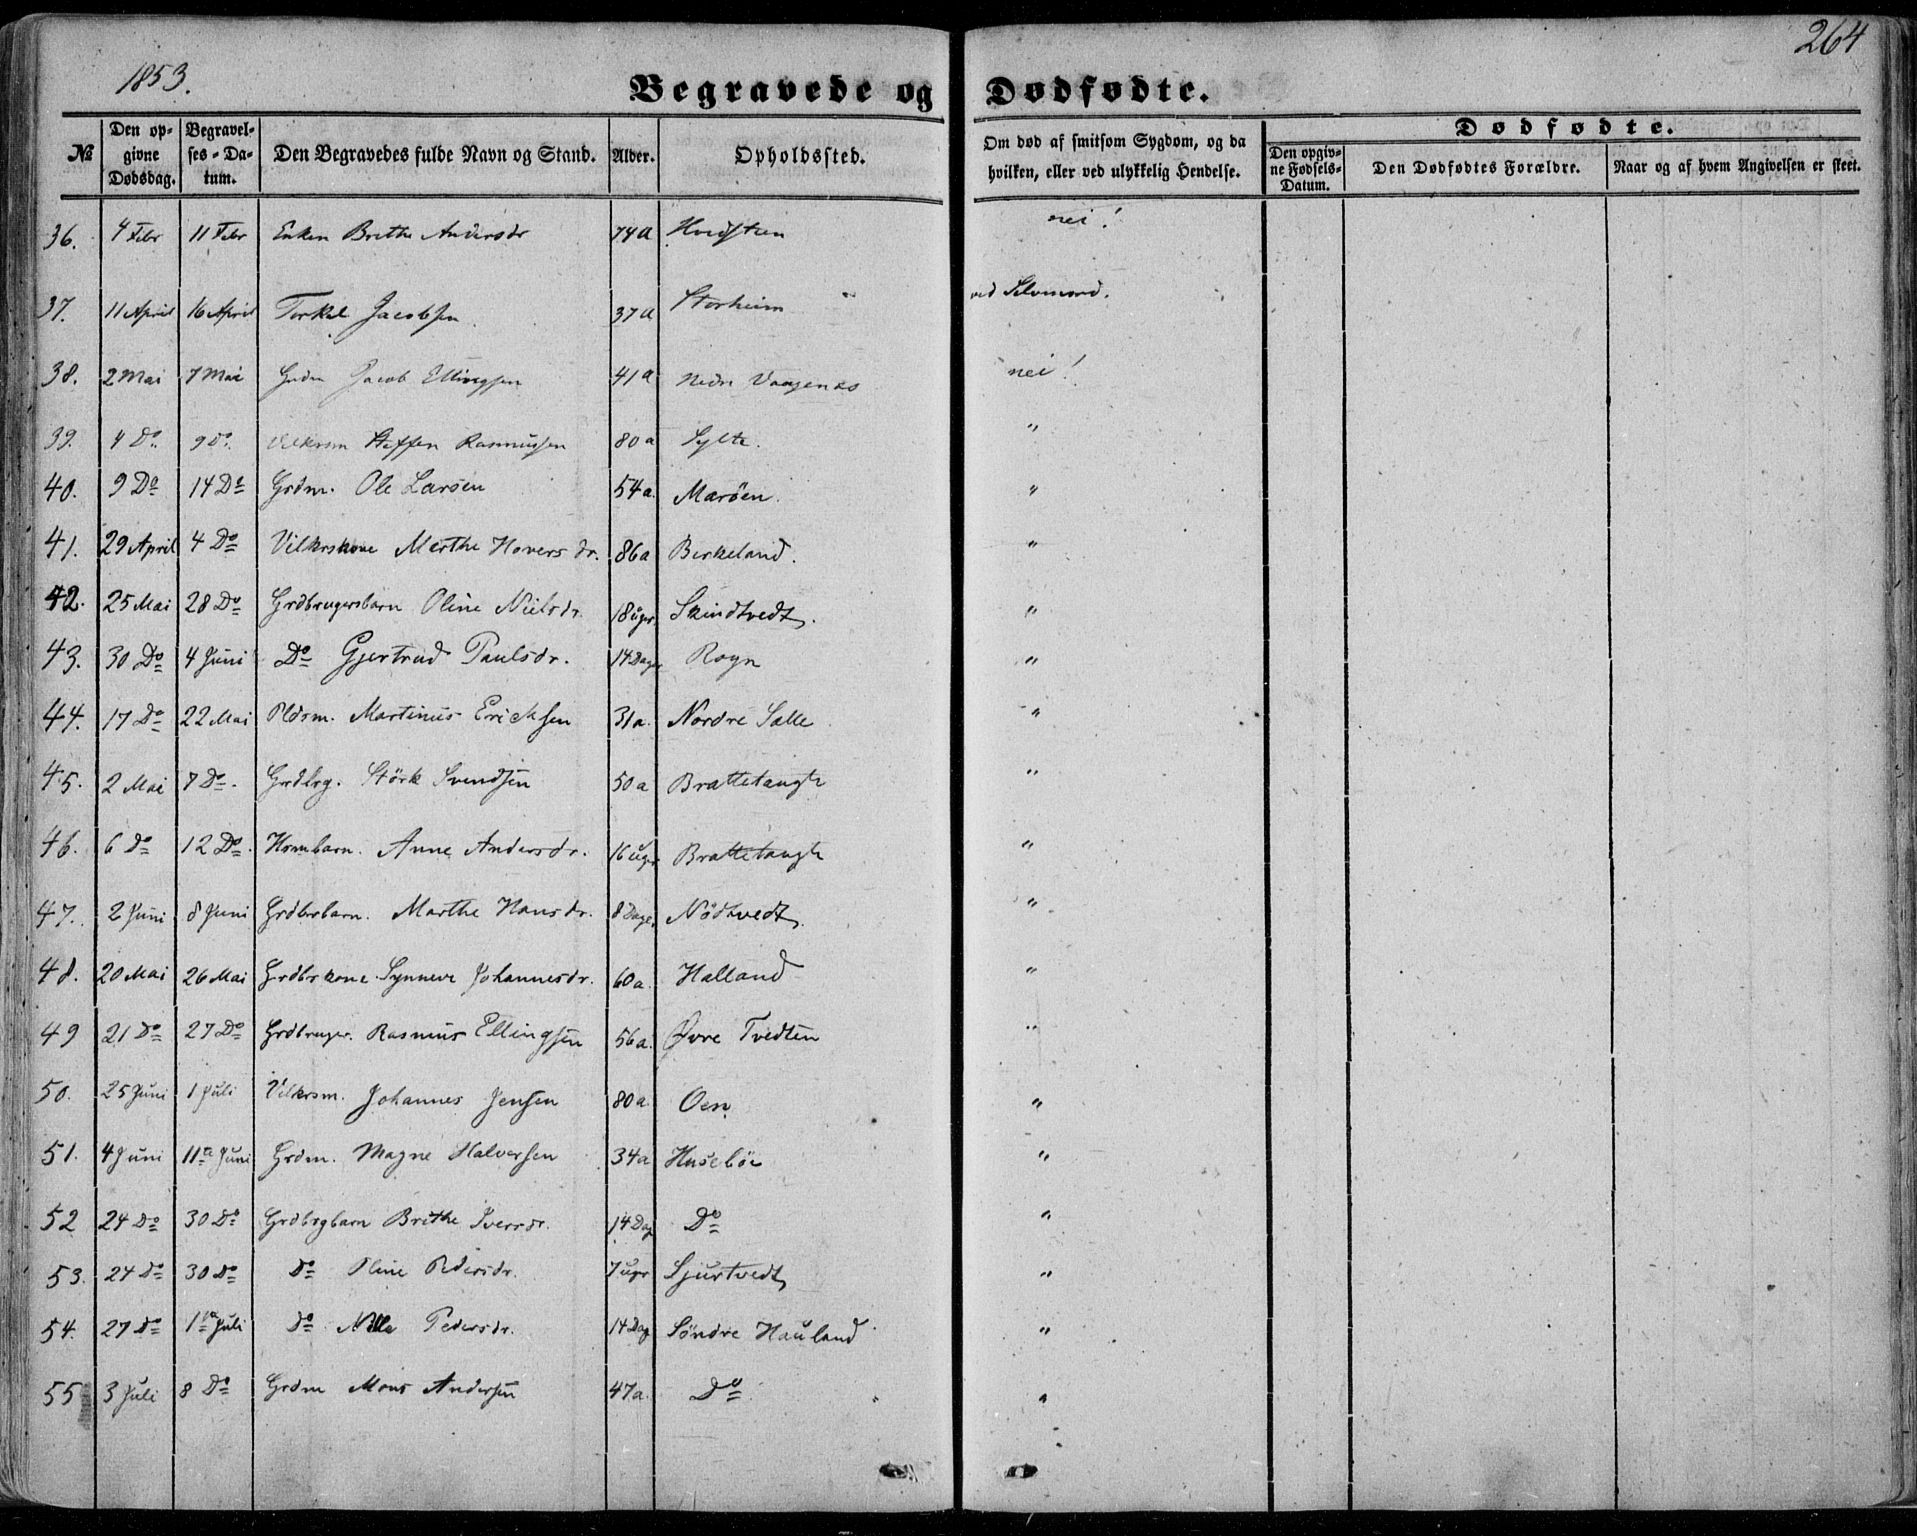 264
1853.
Begravede og Dødfødte.
№ | Den opgivne Dødsdag. | Begravelses-Datum. | Den Begravedes fulde Navn og Stand. | Alder. | Opholdssted. | Om død af smitsom Sygdom, og da hvilken, eller ved ulykkelig Hendelse. | Dødfødte. | Den opgivne Fødsels-Datum. | Den Dødfødtes Forældre. | Naar og af hvem Angivelsen er skeet.
36. 4 Febr 11 Febr Enken Brithe Andersdr 74a Hvidsteen nei!
37. 11 April 16 April Torkel Jacobsen 37a Storheim ved Selvmord.
38. 2 Mai 7 Mai Grdm Jacob Ellingsen 41a nedre Vaagenes nei!
39. 4 Do. 9 Do. Vilkrsm Steffen Rasmussen 80a Sylte. "
40. 9 Do 14 Do Grdm. Ole Larsen 54a. Marøen. "
41. 29 April 4 Do Vilkrskone Marthe Haversdr. 86a Birkeland. "
42. 25 Mai 28 Do Grdbrugersbarn Oline Nielsdr. 18 uger. Skindtvedt. "
43. 30 Do 4 Juni Do Gjertrud Paulsdr. 14 Dage Rogn "
44. 17 Do 22 Mai Pldsm. Martinus Ericksen 31a. Nordre Salle "
45. 2 Mai 7 Do. Grdbrg. Störk Svendsen 50a Brattetangte "
46. 6 do 12 Do. Hsmbarn. Anne Andersdr. 16 uger Brattetangte "
47. 2 Juni 8 Juni Grdbrbarn. Marthe Hansdr. 8 Dage. Nödtvedt. "
48. 20 Mai 26 Mai Grdbrkone Synneve Johannesdr. 60a. Halland "
49 21 Do 27 Do Grdbruger. Rasmus Ellingsen 56a. Øvre Tvedten "
50. 25 Juni 1 Juli Vilkrsm. Johannes Jensen 80a Oen. "
51. 4 Juni 11te Juni Grdm. Magne Halversen 34a Huseböe "
52 24 Do 30 Do Grdbrgbarn Brithe Iversdr. 14 Dag Do "
53. 24 Do 30 Do do Oline Pedersdr. 7 uger Sjurtvedt "
54. 27 Do 1te Juli do Nille Pedersdr. 14 Dag Söndre Hauland "
55 3 Juli 8 Do Grdm Mons Andersen 47a. Do "